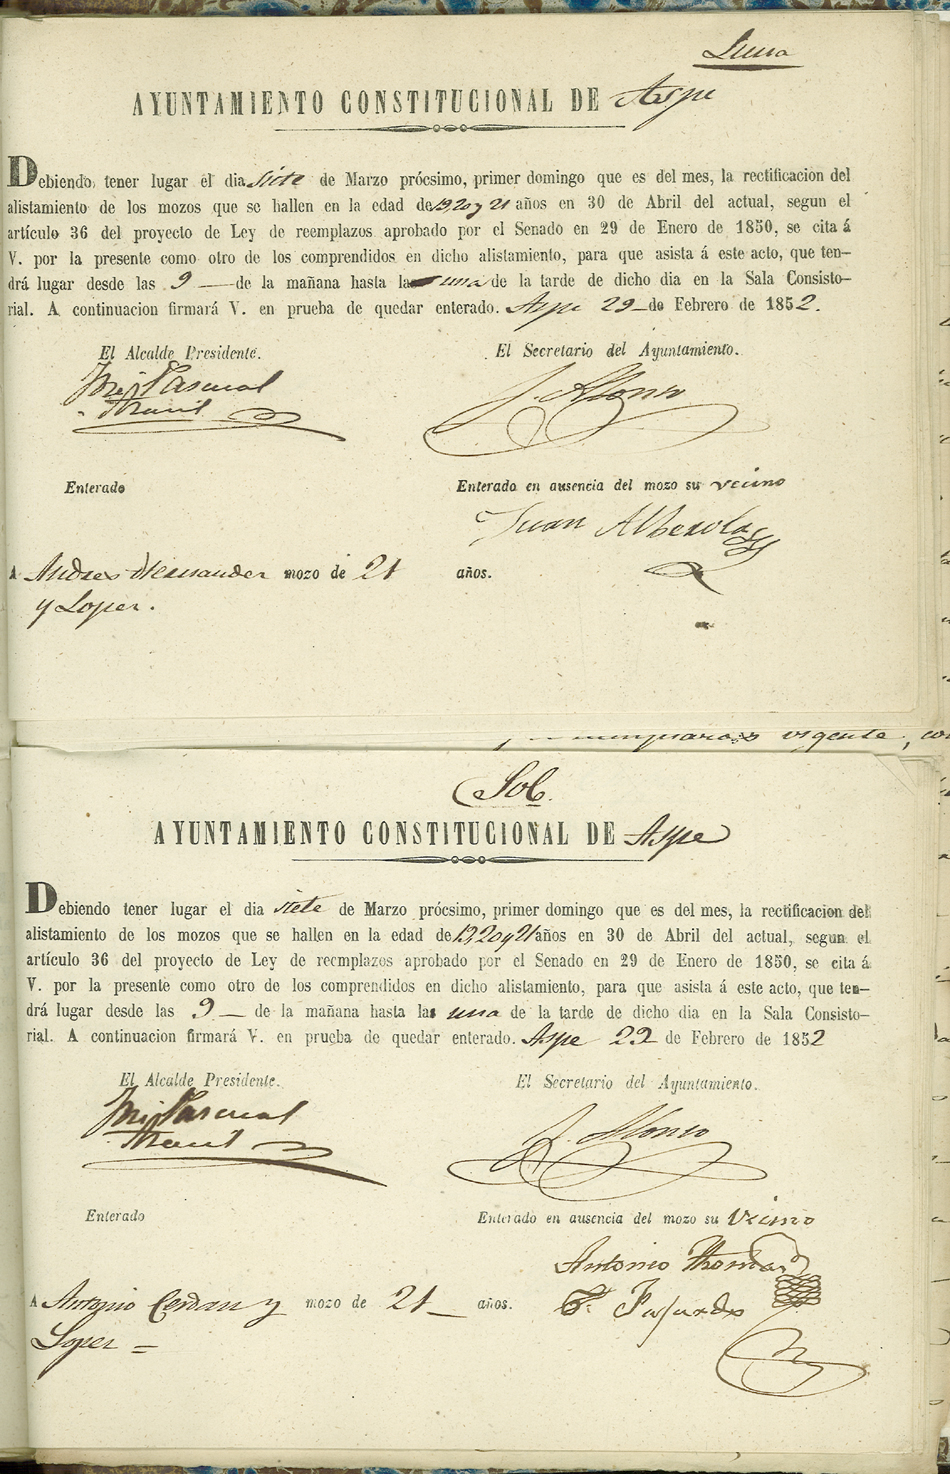 Luna
AYUNTAMIENTO CONSTITUCIONAL DE Aspe
Debiendo tener lugar el dia siete de Marzo prócsimo, primer domingo que es del mes, la rectificacion del
alistamiento de los mozos que se hallen en la edad de 19, 20 y 21 años en 30 de Abril del actual, segun el
artículo 36 del proyecto de Ley de reemplazos aprobado por el Senado en 29 de Enero de 1850, se cita á
V. por la presente como otro de los comprendidos en dicho alistamiento, para que asista á este acto, que ten–
drá lugar desde las 9 — de la mañana hasta la una de la tarde de dicho dia en la Sala Consisto–
rial. A continuacion firmará V. en prueba de quedar enterado. Aspe 29 de Febrero de 1852.
El Alcalde Presidente. El Secretario del Ayuntamiento.
Pascual J. Alonso
Enterado Enterado en ausencia del mozo su vecino
Juan Alberola
A Andres Hernandez mozo de 21 años.
y Lopez.
vigente,
Sol
AYUNTAMIENTO CONSTITUCIONAL DE Aspe
Debiendo tener lugar el dia siete de Marzo prócsimo, primer domingo que es del mes, la rectificacion del
alistamiento de los mozos que se hallen en la edad de 19, 20 y 21 años en 30 de Abril del actual, segun el
artículo 36 del proyecto de Ley de reemplazos aprobado por el Senado en 29 de Enero de 1850, se cita á
V. por la presente como otro de los comprendidos en dicho alistamiento, para que asista á este acto, que ten–
drá lugar desde las 9 — de la mañana hasta las una de la tarde de dicho dia en la Sala Consisto–
rial. A continuacion firmará V. en prueba de quedar enterado. Aspe 29 de Febrero de 1852
El Alcalde Presidente. El Secretario del Ayuntamiento.
Pascual J. Alonso
Enterado Enterado en ausencia del mozo su Vecino
Antonio Thomas
A Antonio Cerdan y mozo de 21 — años.
Lopez =